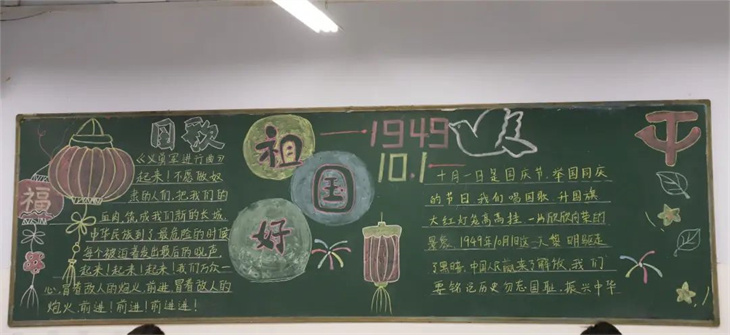 福
国歌
《义勇军进行曲》
起来!不愿做奴
隶的人们,把我们的
血肉,筑成我们新的长城,
中华民族到了最危险的时候
每个被迫着发出最后的吼声,
起来!起来!起来!我们万众一
心,冒着敌人的炮火,前进,冒着敌人的
炮火,前进!前进!前进进!
祖
国
好
1949
10.1
十月一日是国庆节,举国同庆
的节日,我们唱国歌,升国旗
大红灯笼高高挂,一片欣欣向荣的
景象,1949年10月1日这一天黎明驱走
了黑暗,中国人民赢来了解放,我们
要铭记历史勿忘国耻,振兴中华